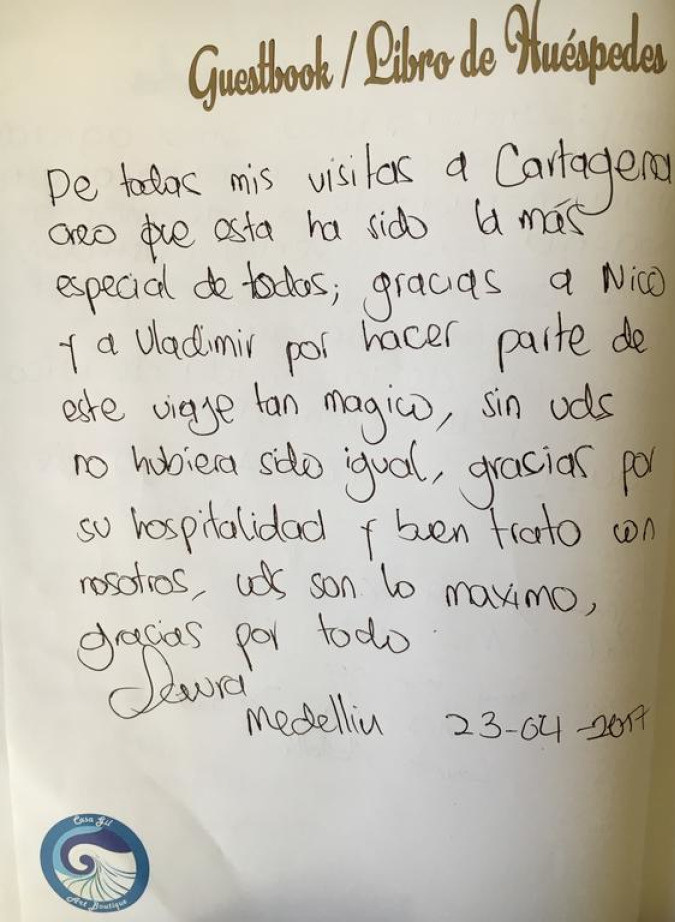 Guestbook / Libro de Huéspedes
De todas mis visitas a Cartagena
creo que esta ha sido la más
especial de todas; gracias a Nico
y a Vladimir por hacer parte de
este viaje tan magico, sin uds
no hubiera sido igual, gracias por
su hospitalidad y buen trato con
nosotros, uds son lo maximo,
gracias por todo.
Laura
Medellin 23-04-2017
Casa Gil
Art Boutique